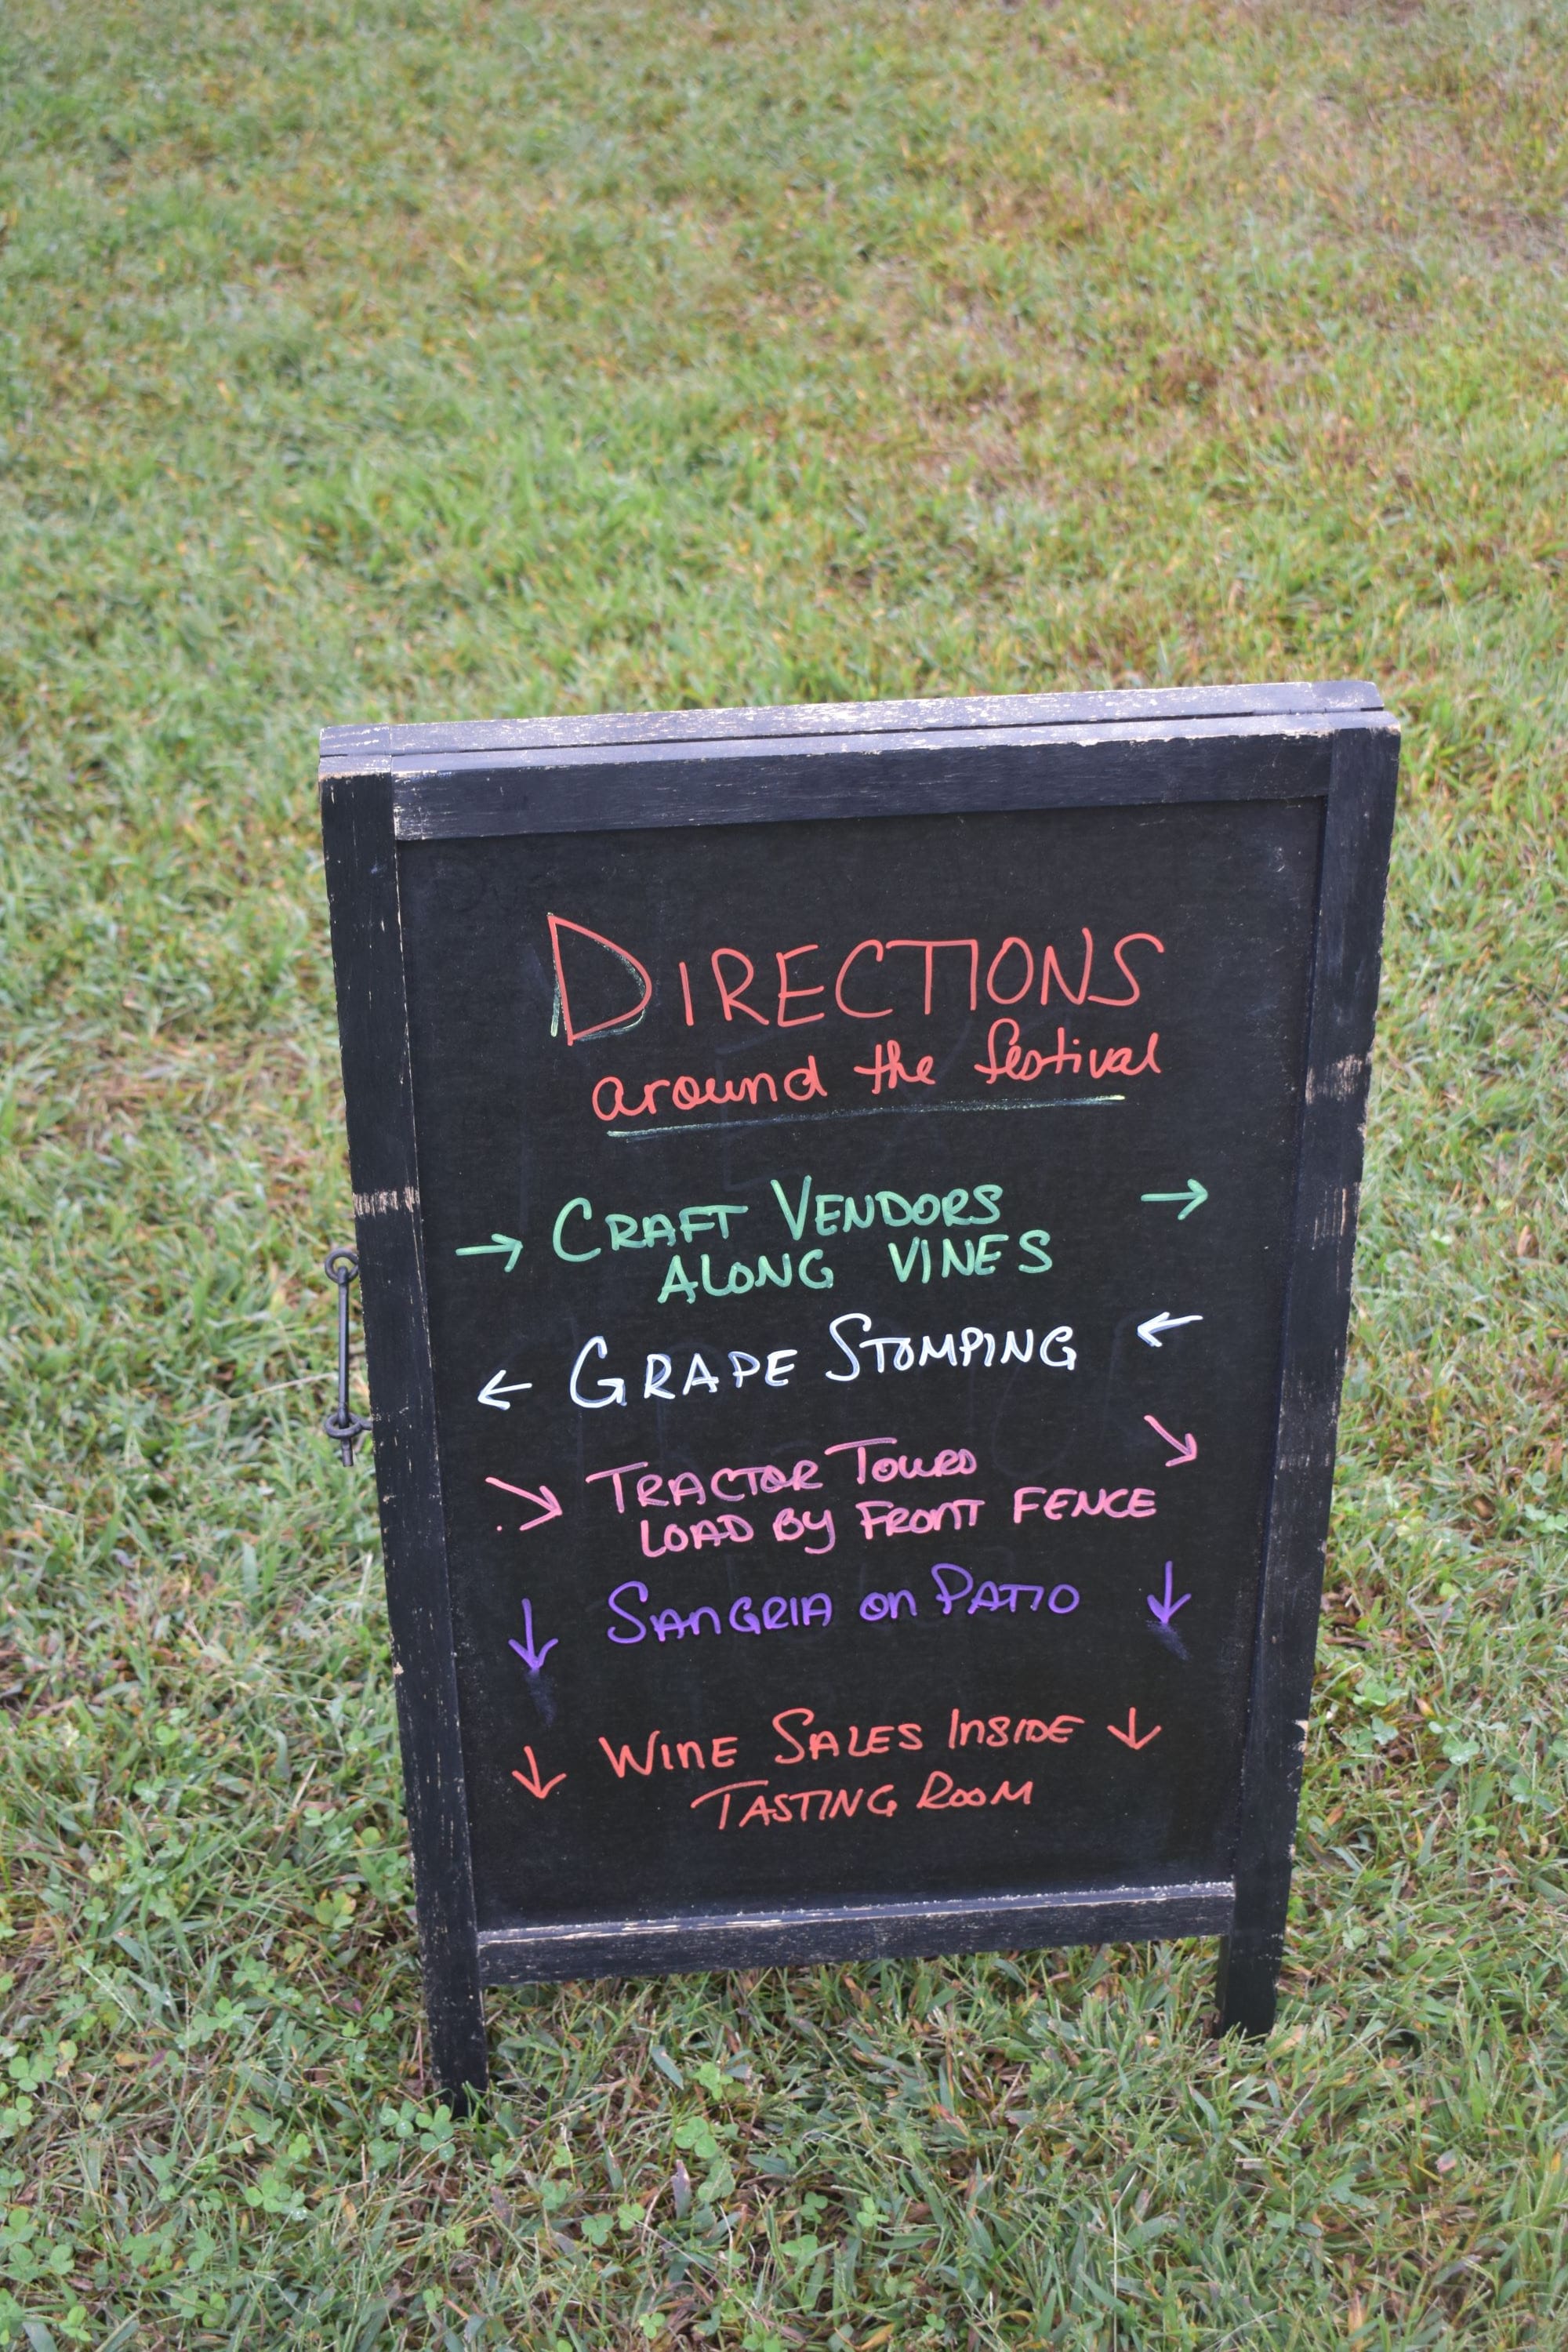 DIRECTIONS
around the festival
→ CRAFT VENDORS →
ALONG VINES
← GRAPE STOMPING ←
↘ TRACTOR TOURS ↘
LOAD BY FRONT FENCE
↓ SANGRIA on PATIO ↓
↓ WINE SALES INSIDE ↓
TASTING ROOM